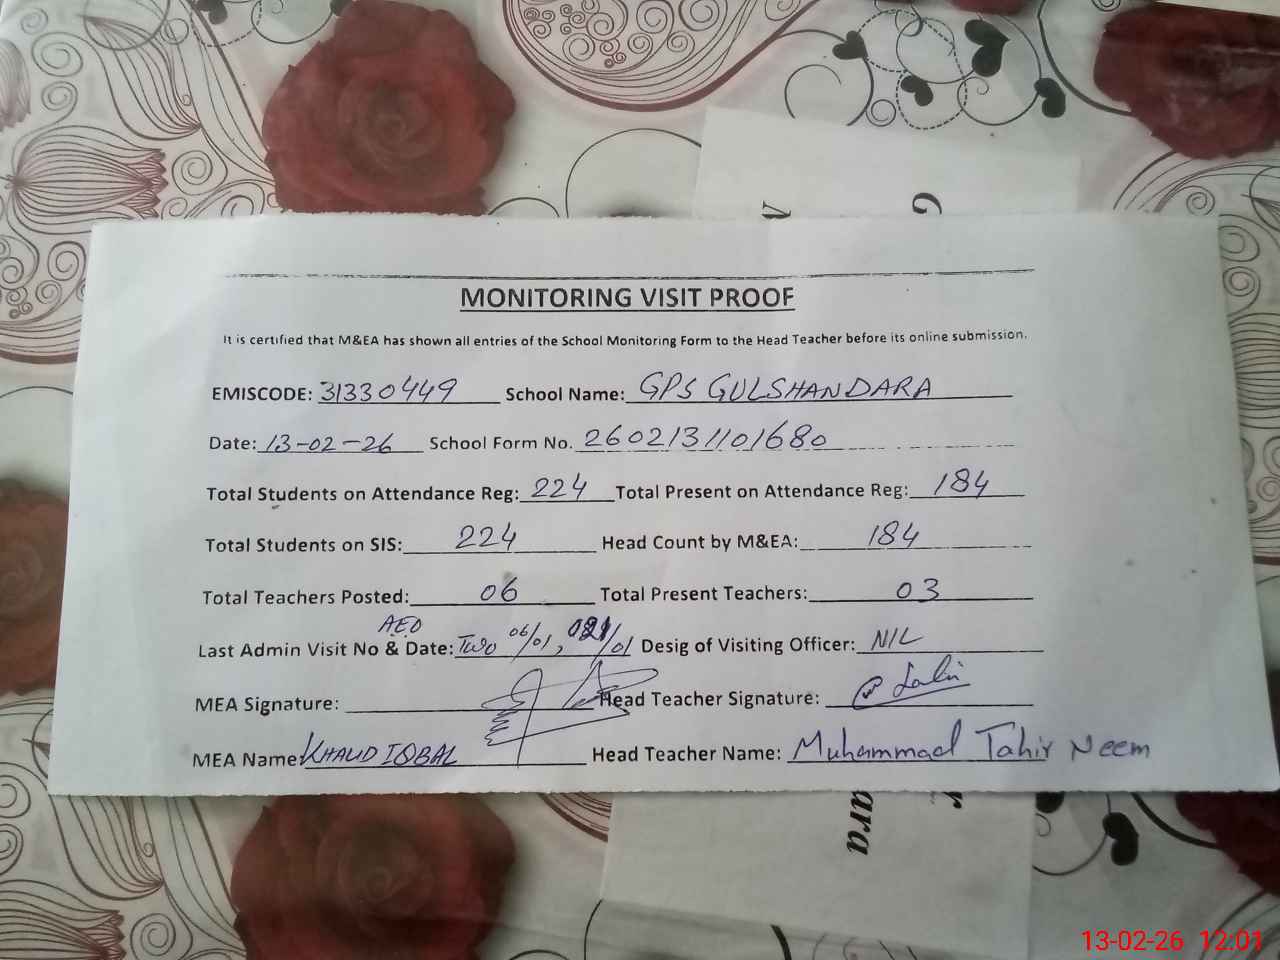 G
MONITORING VISIT PROOF
It is certified that M&EA has shown all entries of the School Monitoring Form to the Head Teacher before its online submission.
EMISCODE: 31330449 School Name: GPS GULSHANDARA
Date: 13-02-26 School Form No. 2602131101680
Total Students on Attendance Reg: 224 Total Present on Attendance Reg: 184
Total Students on SIS: 224 Head Count by M&EA: 184
Total Teachers Posted: 06 Total Present Teachers: 03
AEO
Last Admin Visit No & Date: Two 06/01, /01 Desig of Visiting Officer: NIL
MEA Signature: Head Teacher Signature:
MEA Name: KHALID IQBAL Head Teacher Name: Muhammad Tahir Neem
ara
13-02-26 12:01